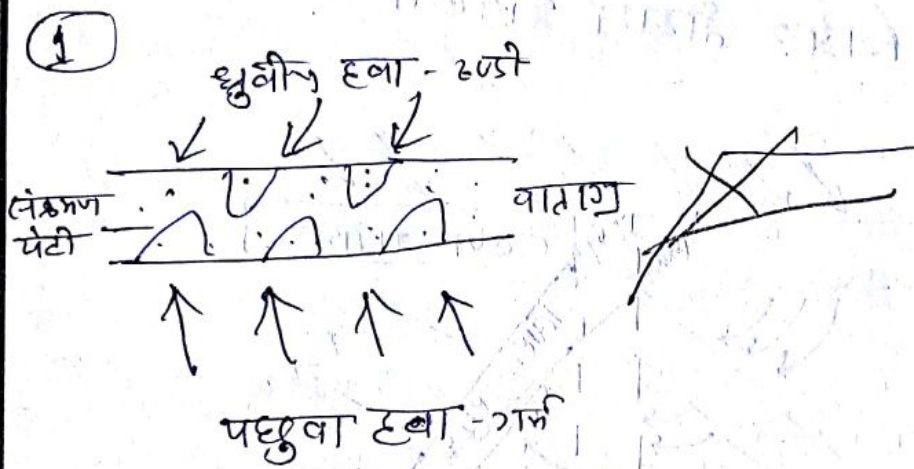 1
ध्रुवीय हवा - ठण्डी
संक्रमण
पेटी
वाताग्र
पछुवा हवा - गर्म